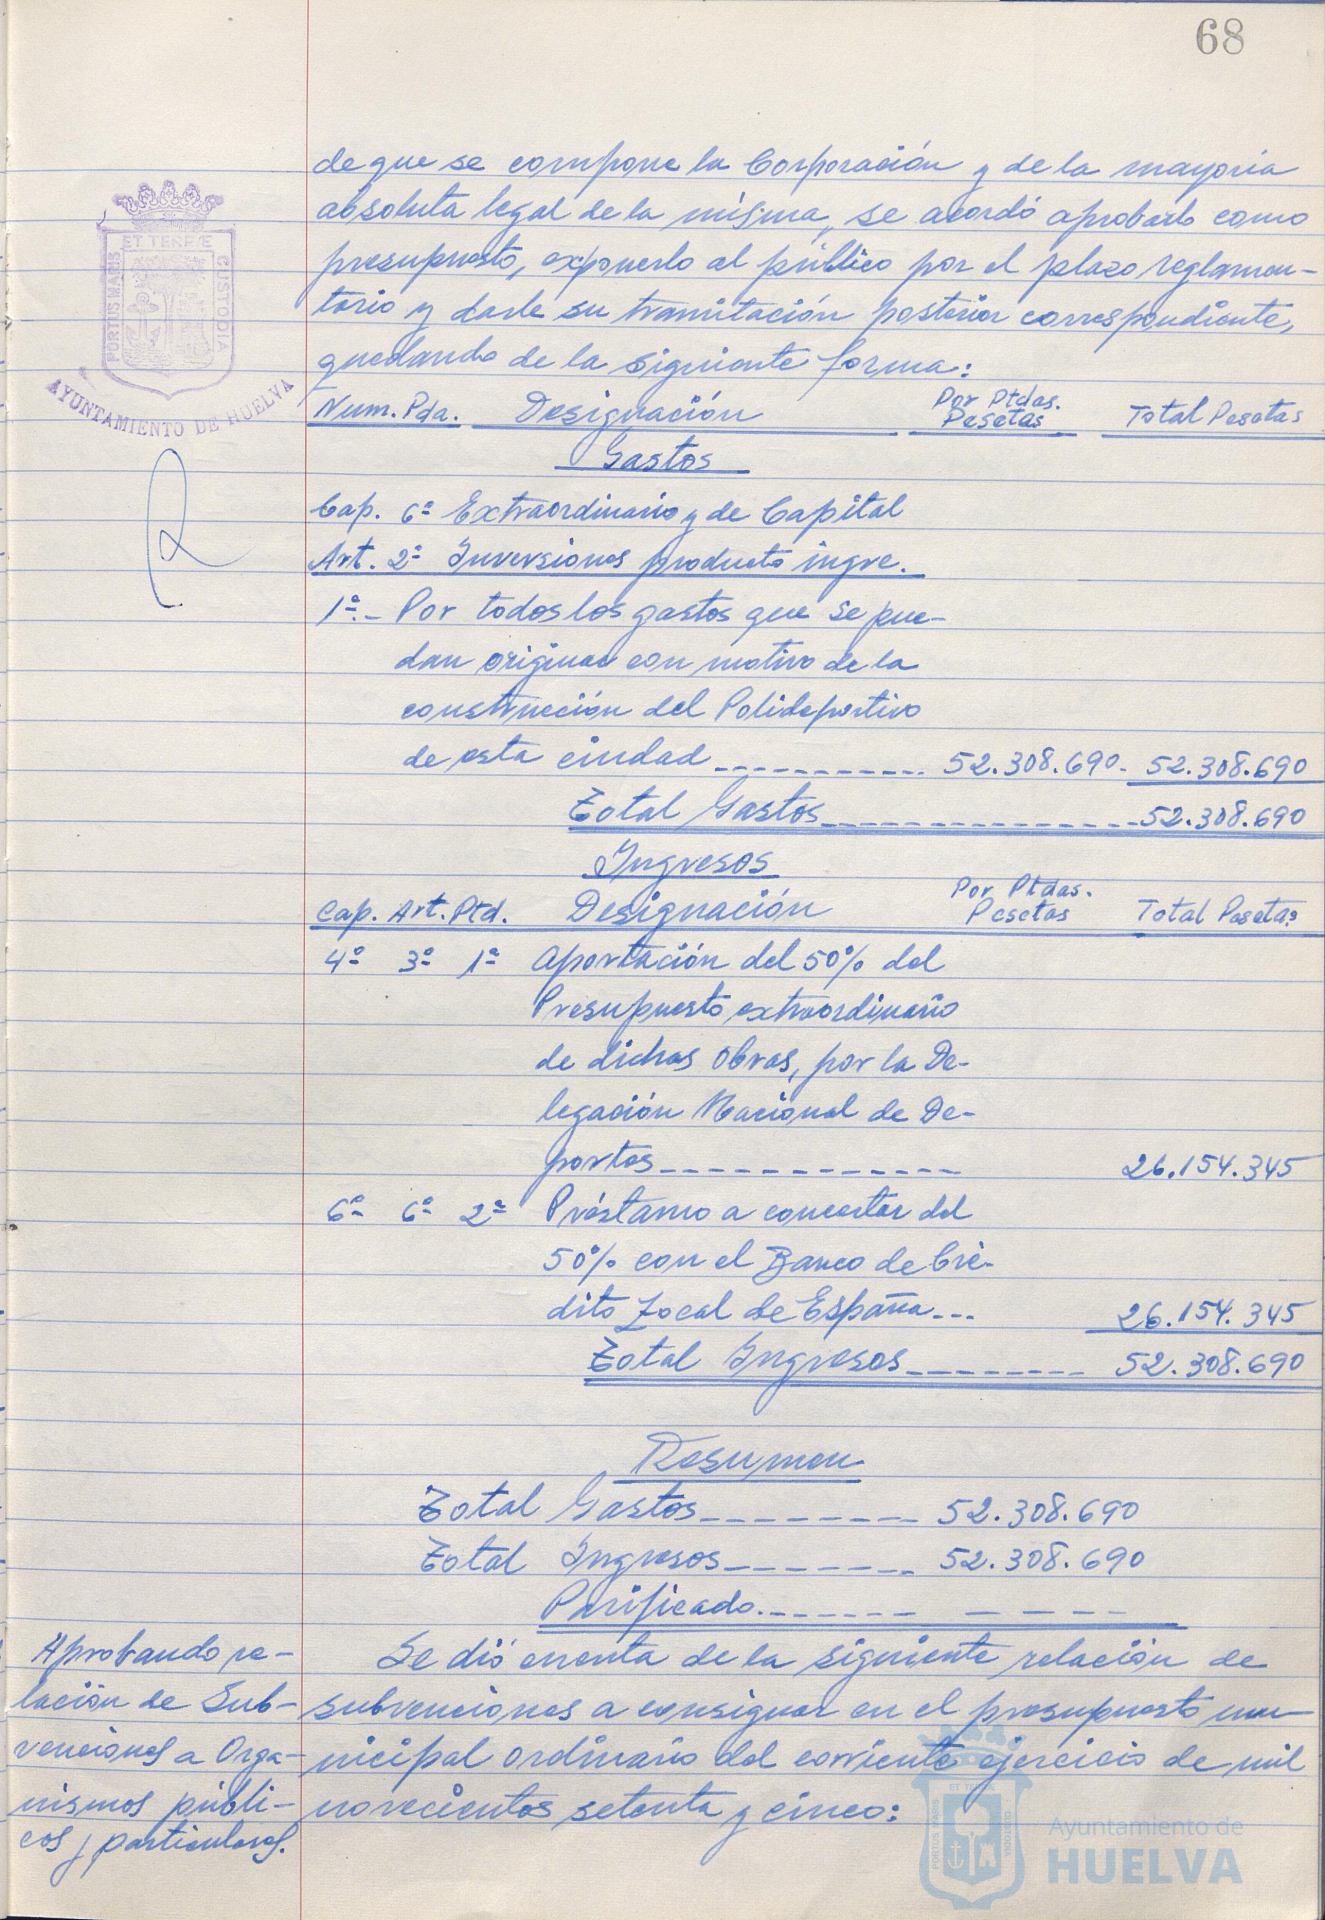 68
de que se compone la Corporación y de la mayoría
absoluta legal de la misma, se acordó aprobarlo como
presupuesto, exponerlo al público por el plazo reglamen-
tario y darle su tramitación posterior correspondiente,
quedando de la siguiente forma:
PORTUS MARIS ET TERRÆ CUSTODIA
AYUNTAMIENTO DE HUELVA
Num. Pda. Designación Por Ptdas. Pesetas Total Pesetas
Gastos
Cap. 6º Extraordinario y de Capital
Art. 2º Inversiones producto ingre.
1º.- Por todos los gastos que se pue-
dan originar con motivo de la
construcción del Polideportivo
de esta ciudad ----------- 52.308.690- 52.308.690
Total Gastos---------------52.308.690
Ingresos
Cap. Art. Ptd. Designación Por Ptdas. Pesetas Total Pesetas
4º 3º 1ª Aportación del 50% del
Presupuesto extraordinario
de dichas obras, por la De-
legación Nacional de De-
portes------------- 26.154.345
6º 6º 2ª Préstamo a concertar del
50% con el Banco de Cré-
dito Local de España--- 26.154.345
Total Ingresos-------- 52.308.690
Resumen
Total Gastos--------- 52.308.690
Total Ingresos-------- 52.308.690
Parificado.------- -----
Aprobando re-
lación de Sub-
venciones a Orga-
nismos públi-
cos y particulares.
Se dió cuenta de la siguiente relación de
subvenciones a consignar en el presupuesto mu-
nicipal ordinario del corriente ejercicio de mil
novecientos setenta y cinco:
PORTUS MARIS ET TERRÆ CUSTODIA
Ayuntamiento de
HUELVA